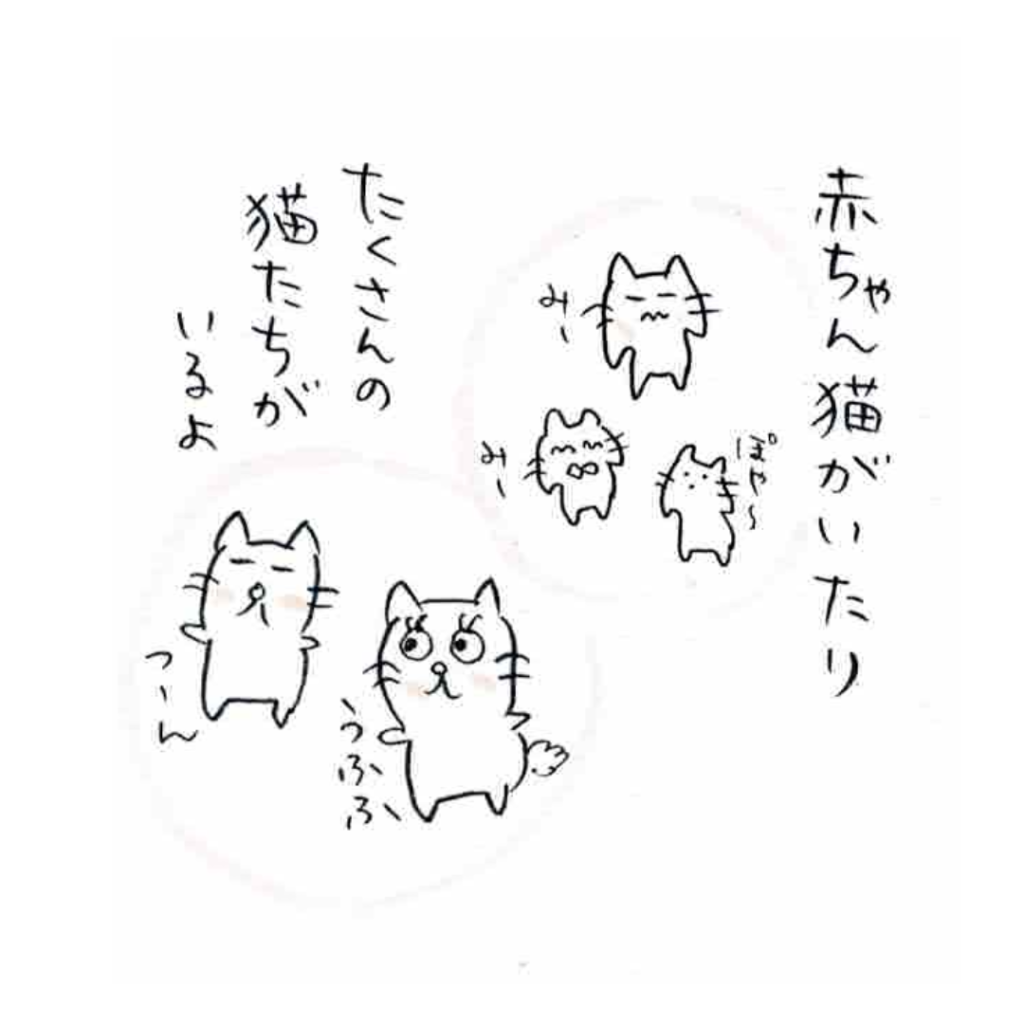 赤ちゃん猫がいたり
みー
みー
ぽや〜
たくさんの
猫たちが
いるよ
つーん
うふふ